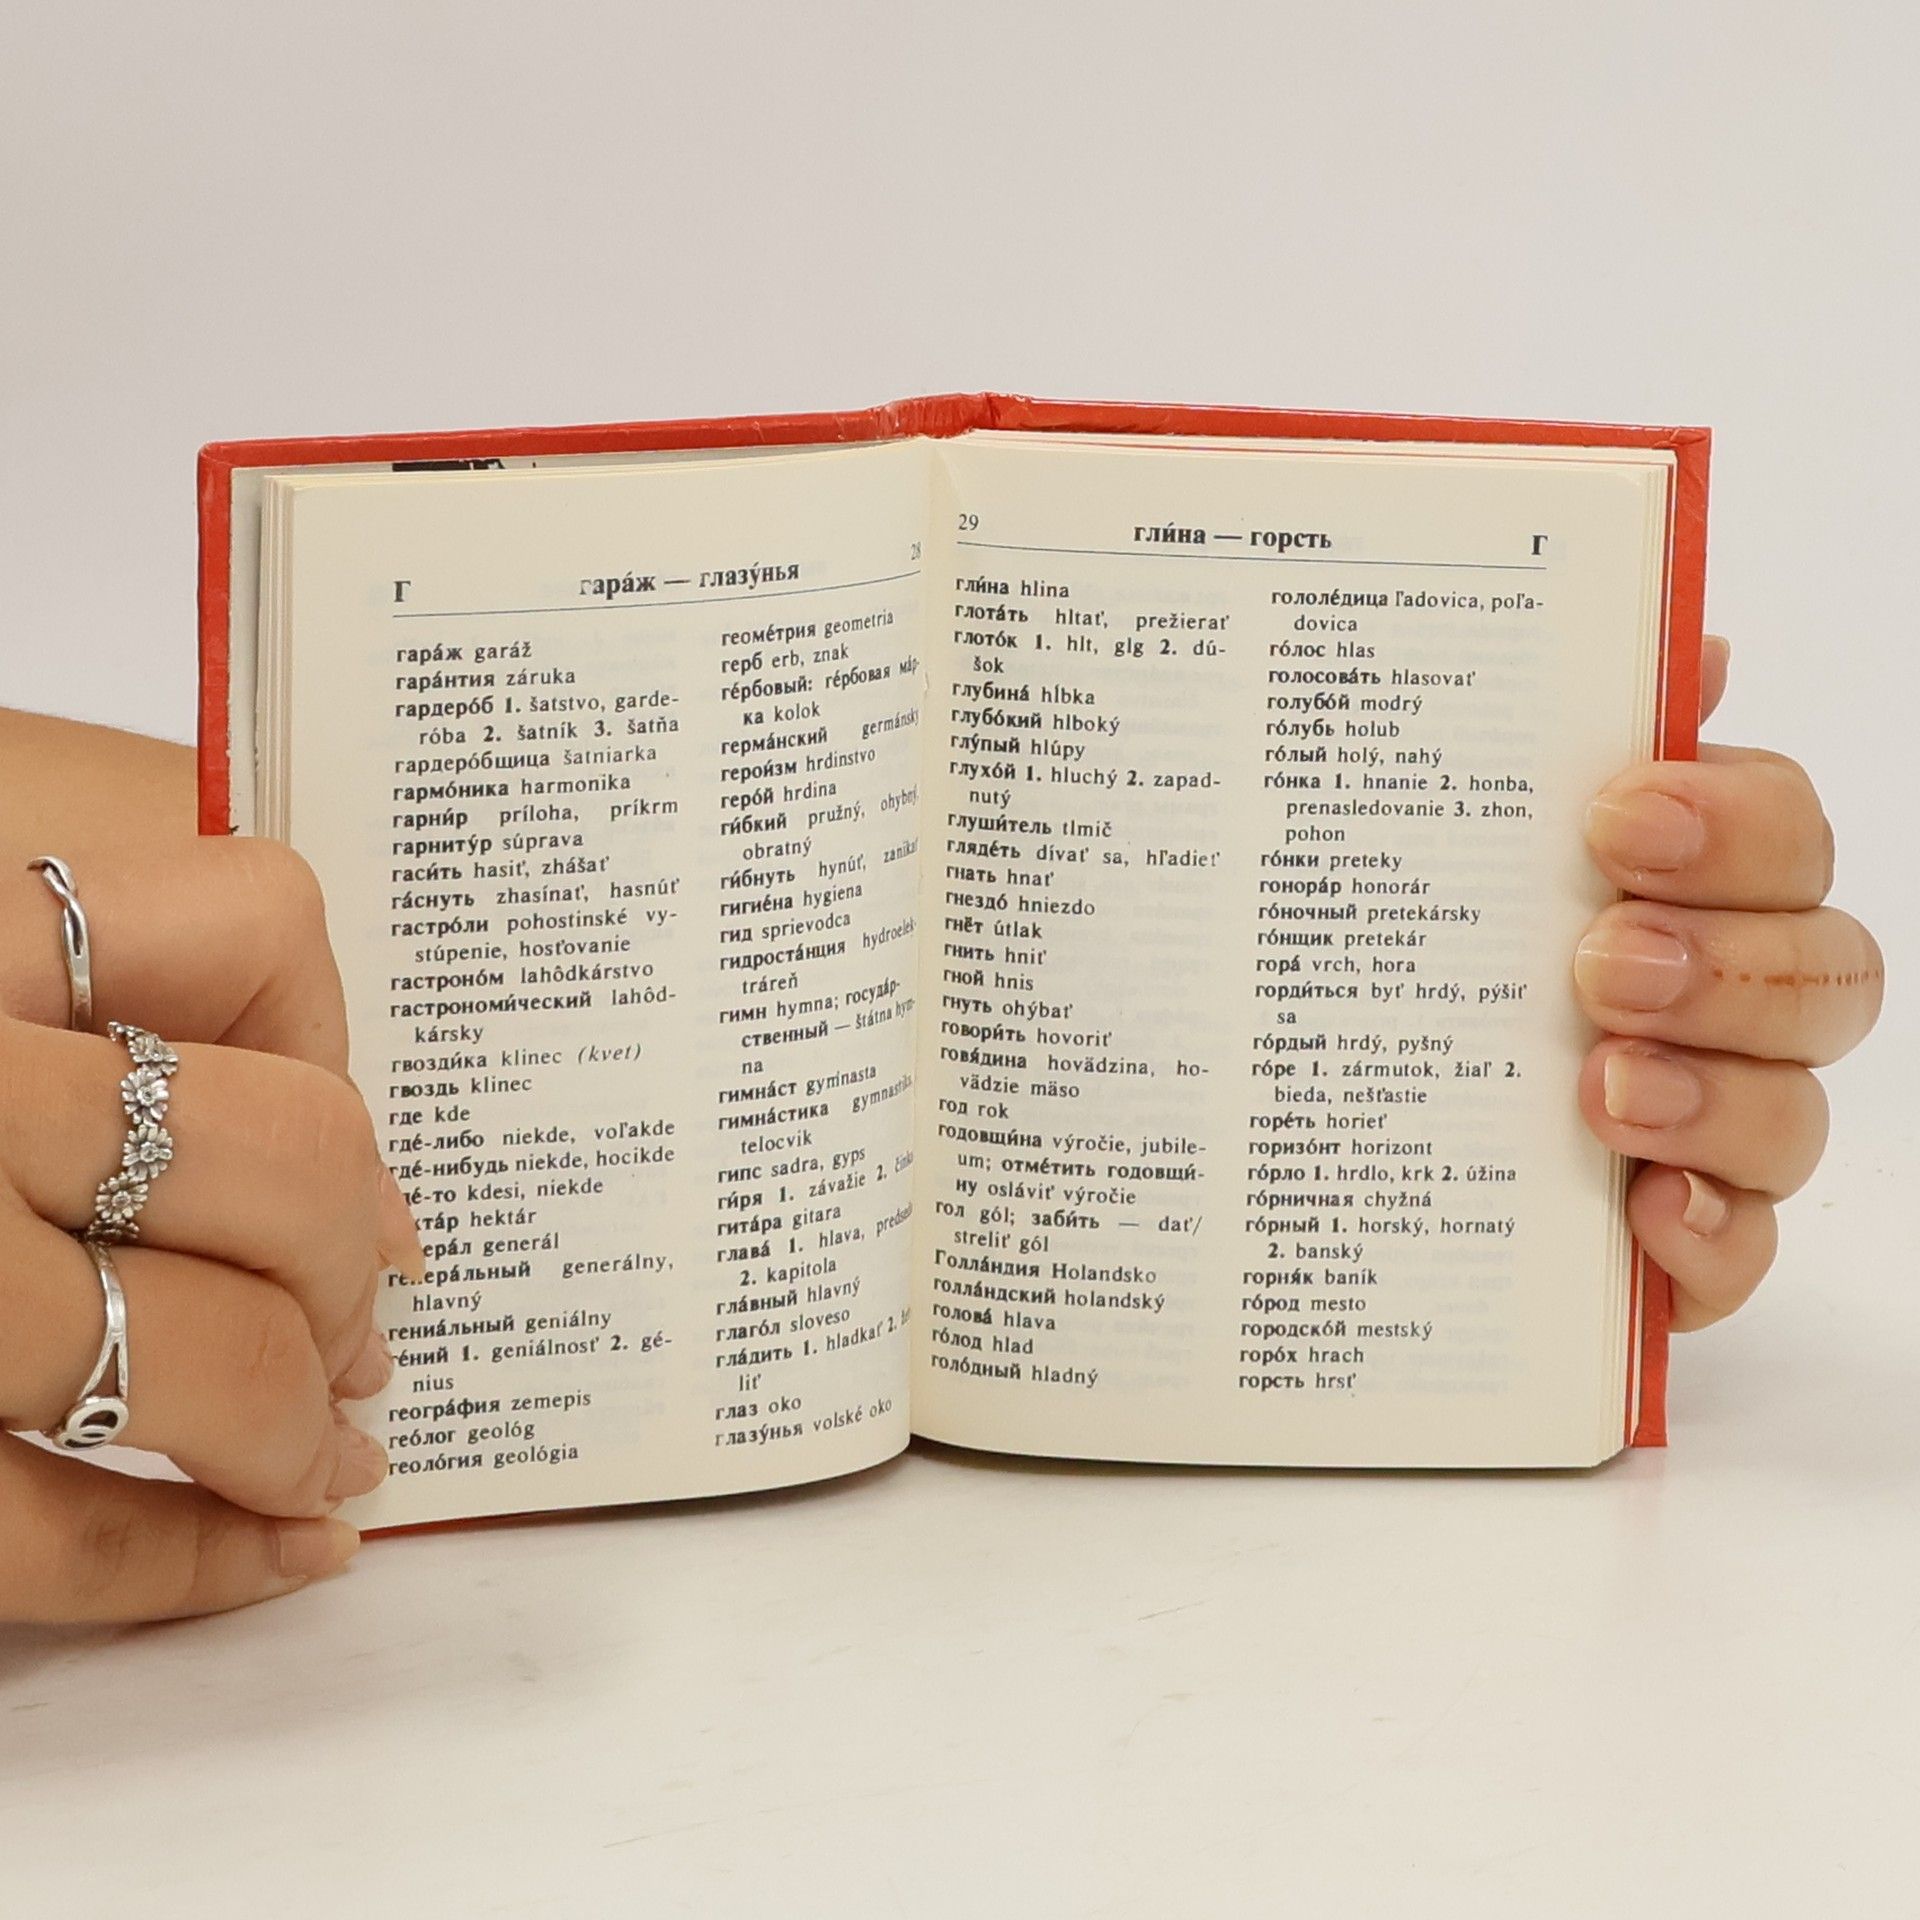 28
Г гара́ж — глазу́нья
гара́ж garáž
гара́нтия záruka
гардеро́б 1. šatstvo, garde-
róba 2. šatník 3. šatňa
гардеро́бщица šatniarka
гармо́ника harmonika
гарни́р príloha, príkrm
гарниту́р súprava
гаси́ть hasiť, zhášať
га́снуть zhasínať, hasnúť
гастро́ли pohostinské vy-
stúpenie, hosťovanie
гастроно́м lahôdkárstvo
гастрономи́ческий lahôd-
kársky
гвозди́ка klinec (kvet)
гвоздь klinec
где kde
где́-либо niekde, voľakde
где́-нибудь niekde, hocikde
kdesi, niekde
hektár
generál
generálny,
hlavný
гениа́льный geniálny
ге́ний 1. geniálnosť 2. gé-
nius
геогра́фия zemepis
гео́лог geológ
геоло́гия geológia
геоме́трия geometria
герб erb, znak
ге́рбовый: ге́рбовая ма́р-
ка kolok
герма́нский germánsky
герои́зм hrdinstvo
геро́й hrdina
ги́бкий pružný, ohybný,
obratný
ги́бнуть hynúť,
гигие́на hygiena
гид sprievodca
гидроста́нция hydroelek-
tráreň
гимн hymna; госуда́р-
ственный — štátna hym-
na
гимна́ст gymnasta
гимна́стика gymnastika,
telocvik
гипс sadra, gyps
ги́ря 1. závažie 2.
гита́ра gitara
глава́ 1. hlava,
2. kapitola
гла́вный hlavný
глаго́л sloveso
гла́дить 1. hladkať 2.
liť
глаз oko
глазу́нья volské oko
29 гли́на — горсть Г
гли́на hlina
глота́ть hltať, prežierať
глото́к 1. hlt, glg 2. dú-
šok
глубина́ hĺbka
глубо́кий hlboký
глу́пый hlúpy
глухо́й 1. hluchý 2. zapad-
nutý
глуши́тель tlmič
гляде́ть dívať sa, hľadieť
гнать hnať
гнездо́ hniezdo
гнёт útlak
гнить hniť
гной hnis
гнуть ohýbať
говори́ть hovoriť
говя́дина hovädzina, ho-
vädzie mäso
год rok
годовщи́на výročie, jubile-
um; отме́тить годовщи́-
ну osláviť výročie
гол gól; заби́ть — dať/
streliť gól
Голла́ндия Holandsko
голла́ндский holandský
голова́ hlava
го́лод hlad
голо́дный hladný
гололе́дица ľadovica, poľa-
dovica
го́лос hlas
голосова́ть hlasovať
голубо́й modrý
го́лубь holub
го́лый holý, nahý
го́нка 1. hnanie 2. honba,
prenasledovanie 3. zhon,
pohon
го́нки preteky
гонора́р honorár
го́ночный pretekársky
го́нщик pretekár
гора́ vrch, hora
горди́ться byť hrdý, pýšiť
sa
го́рдый hrdý, pyšný
го́ре 1. zármutok, žiaľ 2.
bieda, nešťastie
горе́ть horieť
горизо́нт horizont
го́рло 1. hrdlo, krk 2. úžina
го́рничная chyžná
го́рный 1. horský, hornatý
2. banský
горня́к baník
го́род mesto
городско́й mestský
горо́х hrach
горсть hrsť